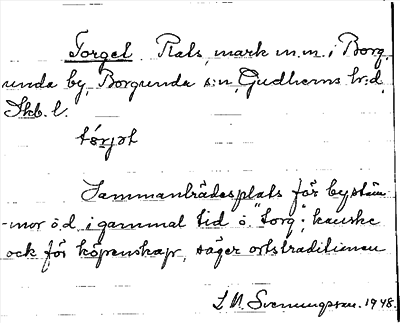 Torget. Plats, mark m.m. i Borg.
unda by, Borgunda s:n, Gudhems hr:d,
Skb. l.
tórjət
Sammanträdesplats för bystäm
-mor o.d. i gammal tid o. "torg"; kanske
ock för köpenskap, säger ortstraditionen
S. A. Svenungsson. 1948.